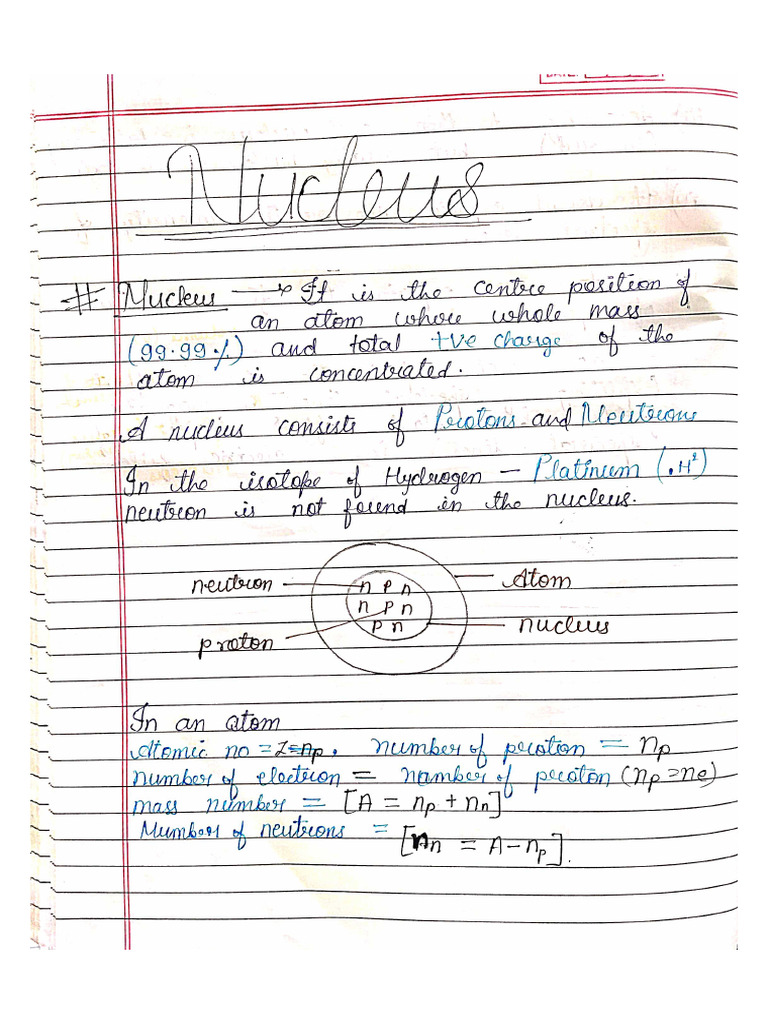 DATE:
Nucleus
# Nucleus → It is the centre position of
an atom where whole mass
(99.99%) and total +ve charge of the
atom is concentrated.
A nucleus consists of Protons and Neutrons
In the isotope of Hydrogen – Platinum (₁H²)
neutron is not found in the nucleus.
neutron n p n Atom
n p n
proton p n nucleus
In an atom
Atomic no = Z = np, number of proton = np
number of electron = number of proton (np = ne)
mass number = [A = np + nn]
Number of neutrons = [nn = A – np].